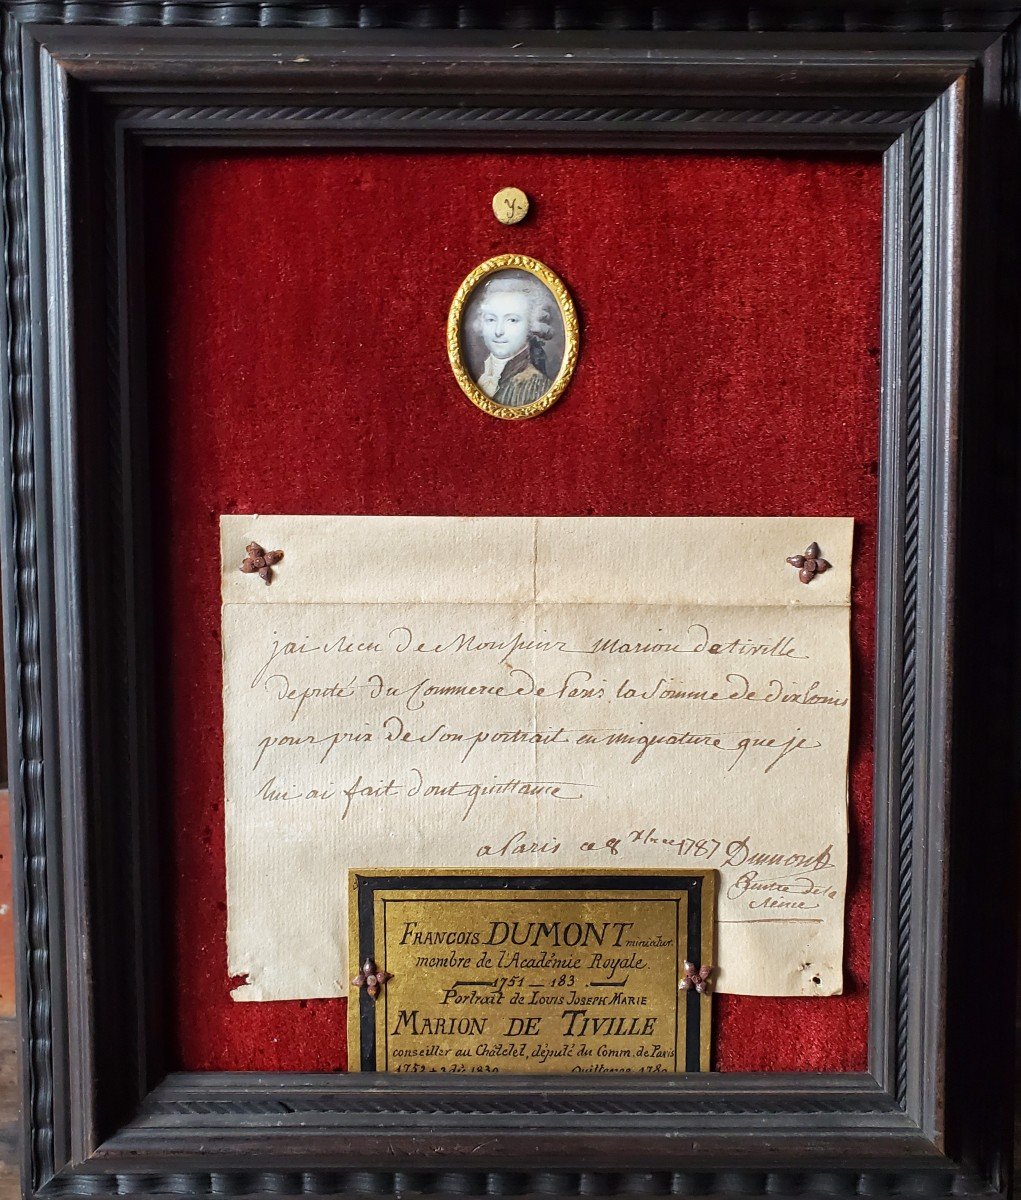 y.
jai Recu de Monsieur Marion detiville
deputé du Commerce de Paris la Somme de dix Louis
pour prix de Son portrait en mignature que je
lui ai fait dont quittance
a Paris ce 8 1787 Dumont
Peintre de la
Reine
FRANCOIS DUMONT miniatur.
membre de l'Académie Royale.
1751 — 183 .
Portrait de LOUIS JOSEPH MARIE
MARION DE TIVILLE
conseiller au Châtelet, député du Comm. de Paris
1752 1830 Quittance 1789